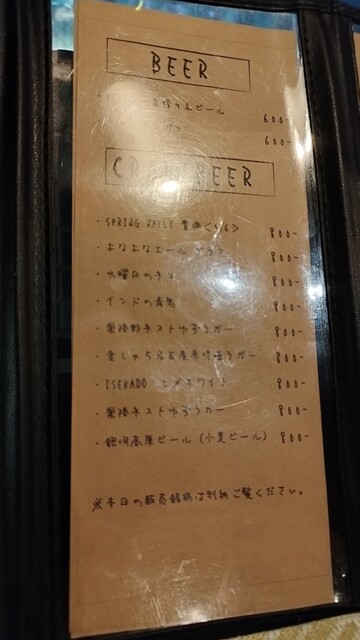 BEER
ビール 600-
600-
CR BEER
・SPRING VALLEY 豊潤<496> 800-
・よなよなエール 800-
・水曜日のネコ 800-
・インドの青鬼 800-
・常陸野ネストゆずラガー 800-
・金しゃち名古屋赤味噌ラガー 800-
・ISEKADO ヒメホワイト 800-
・常陸ネストゆずラガー 800-
・銀河高原ビール (小麦ビール) 800-
※本日の販売銘柄は別紙ご覧ください。